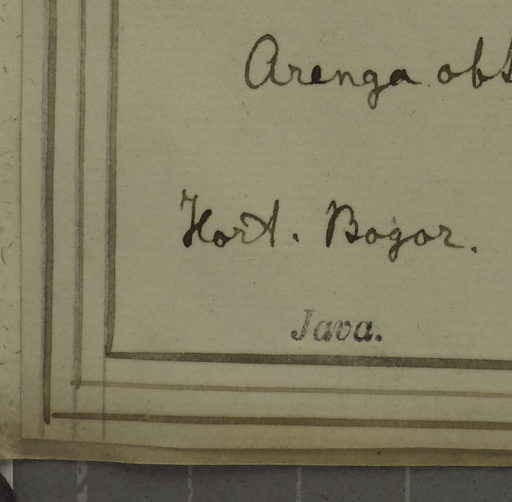 Arenga obt
Hort. Bogor.
Java.